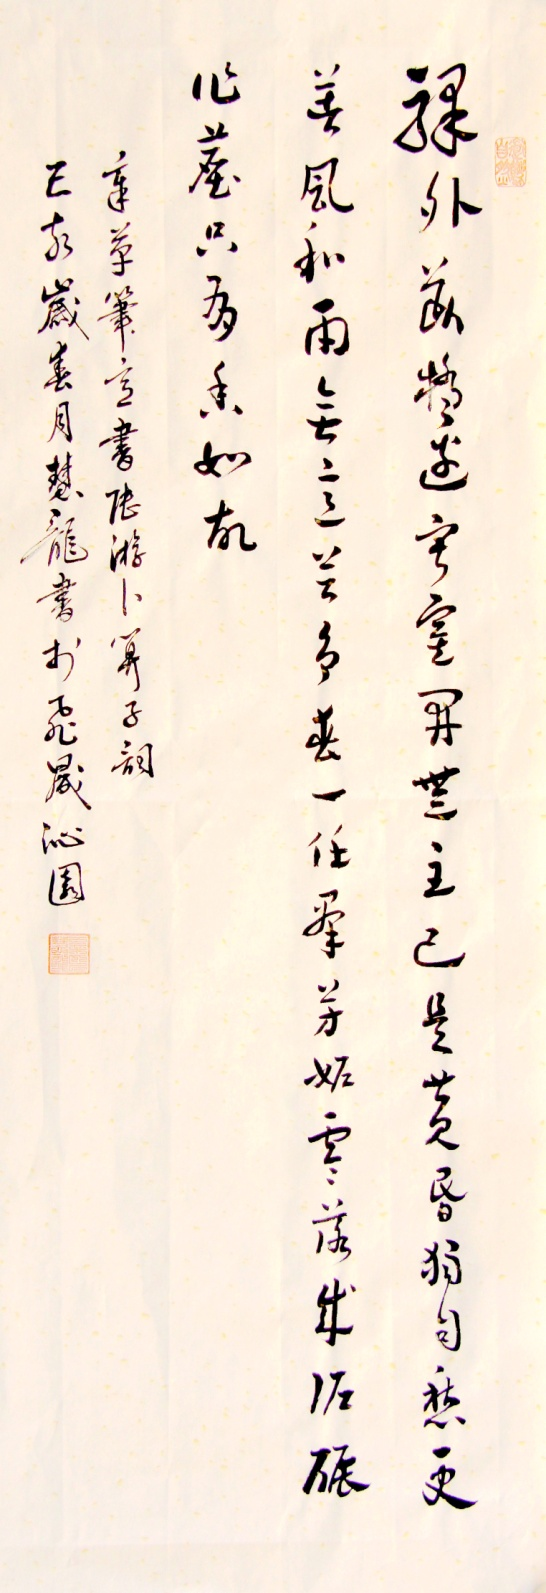 驛外斷橋邊寂寞開無主已是黄昏獨自愁更
著風和雨無意苦争春一任羣芳妬零落成泥碾
作塵只有香如故
章草筆意書陆游卜算子詞
己亥歲春月慧龍書於飛晟沁園